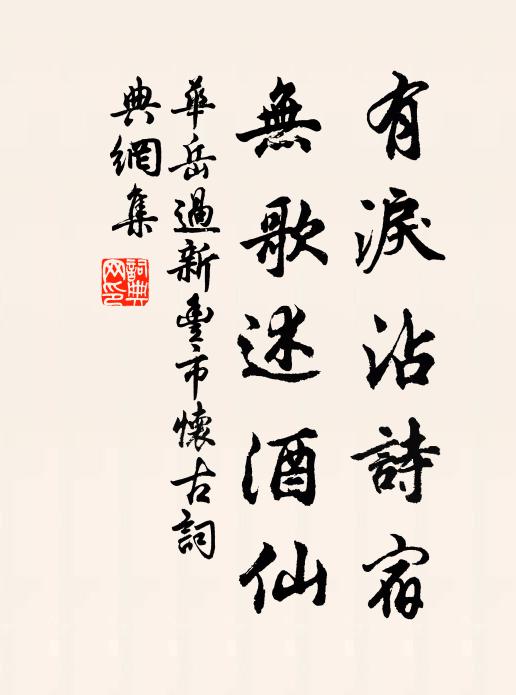 有淚沾詩宿
無歌述酒仙
華岳過新豐市懷古詞
典網集
詞典网印